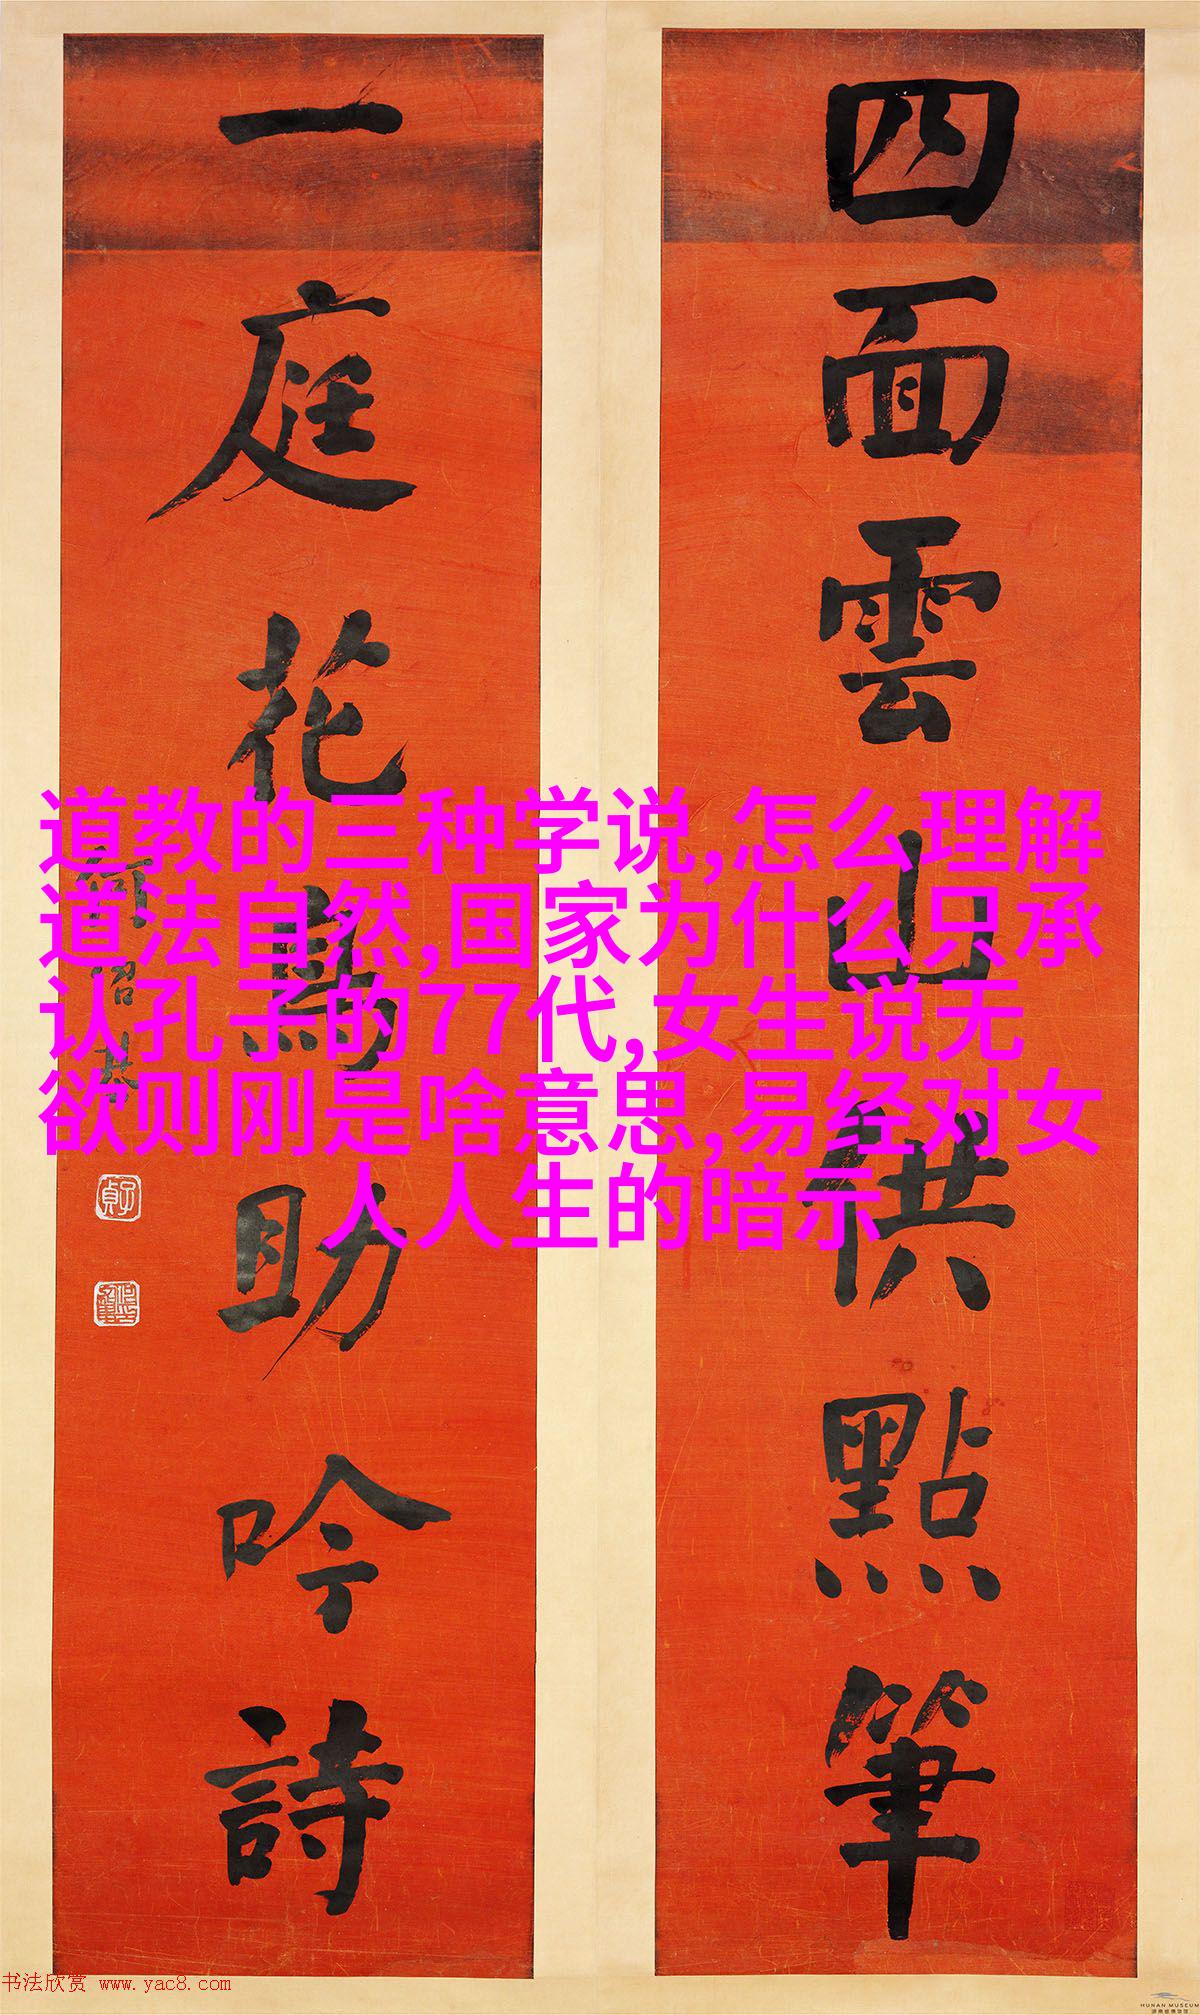 四面雲山供點筆
一庭花鳥助吟詩
何紹基
道教的三种学说,怎么理解
道法自然,国家为什么只承
认孔子的77代,女生说无
欲则刚是啥意思,易经对女
人人生的暗示
书法欣赏 www.yac8.com
HUNAN MUSEUM